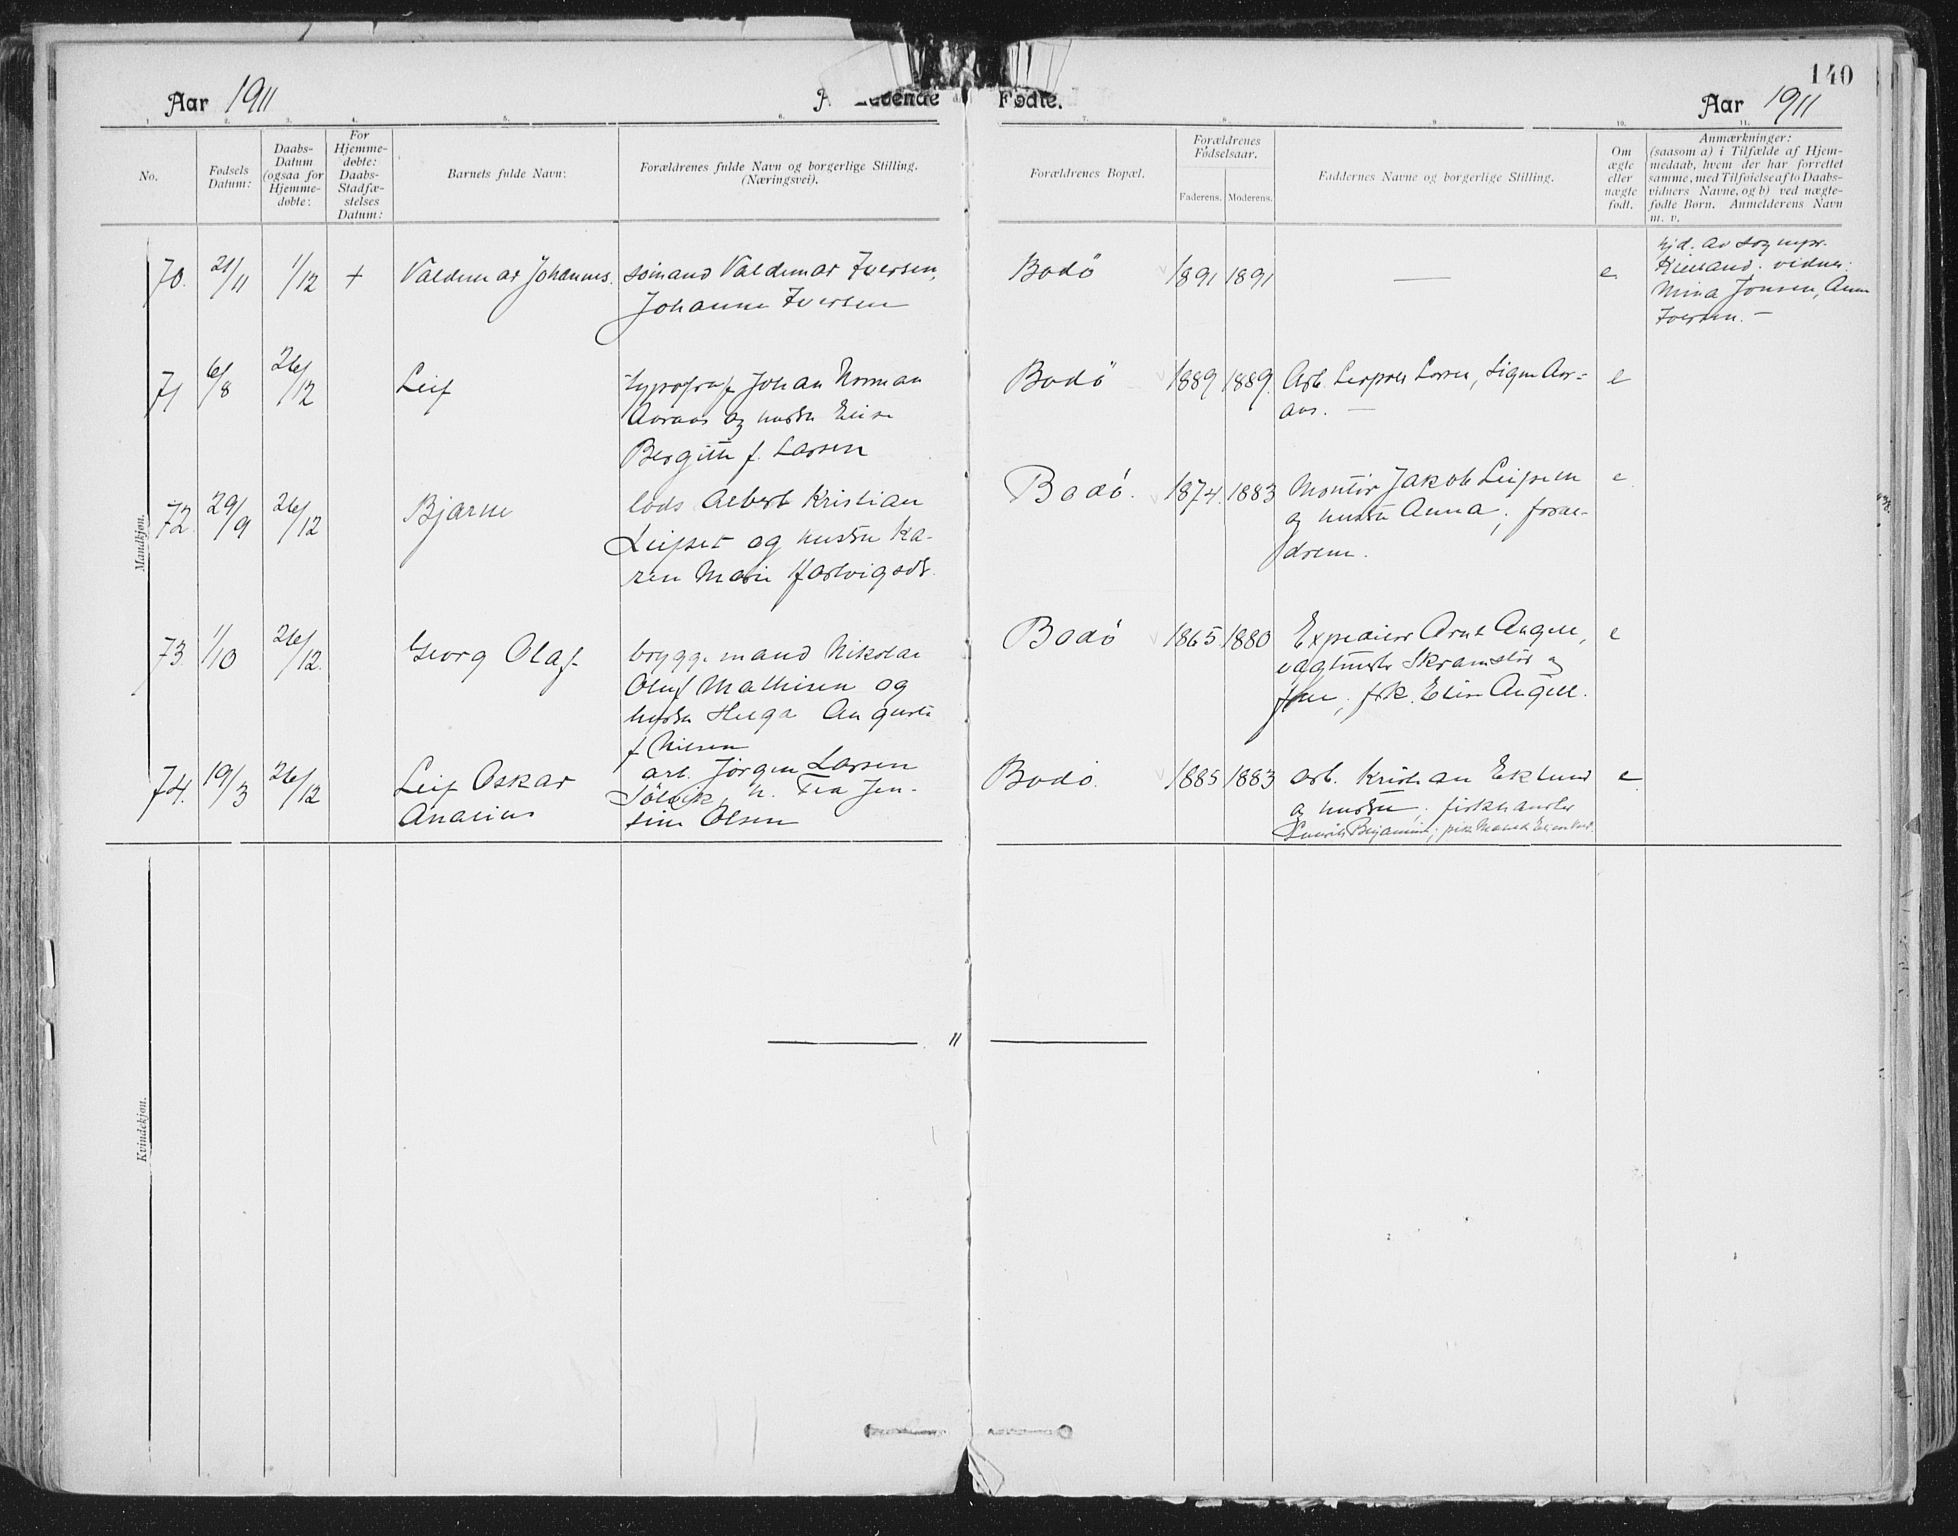 140
Aar 1911
Fødte.
Aar 1911
1. 2. 3. 4. 5. 6. 7. 8. 9. 10. 11.
No.
Fødsels Datum:
Daabs-
Datum
(ogsaa for
Hjemme-
døbte:
For
Hjemme-
døbte:
Daabs-
Stadfæ-
stelses
Datum:
Barnets fulde Navn:
Forældrenes fulde Navn og borgerlige Stilling.
(Næringsvei).
Forældrenes Bopæl.
Forældrenes
Fødselsaar.
Faderens. Moderens.
Faddernes Navne og borgerlige Stilling.
Om
ægte
eller
uægte
født.
Anmærkninger:
(saasom a) i Tilfælde af Hjem-
medaab, hvem der har forrettet
samme, med Tilføielse af to Daabs-
vidners Navne, og b) ved uægte-
fødte Børn. Anmelderens Navn
m. v.
Mandkjøn.
70. 21/11 1/12 + Valdemar Johannes. sømand Valdemar Iversen,
Johanne Iversen
Bodö 1891 1891 — e
hjd. av sognepr.
Kielland. vidner:
Mina Jonsen, Anna
Iversen. —
71 6/8 26/12 Leif typograf Johan Norman
Aaraas og hustru Elise
Bergitte f. Larsen
Bodö 1889 1889. Arb. Larsen, Signe Aar=
aas. — e
72. 29/9 26/12 Bjarne lods Albert Kristian
Leifset og hustru Ka-
ren Marie Hartvigsdt.
Bodö. 1874. 1883 Montör Jakob Leifsen
og hustru Anna, foræl-
drene. e
73. 1/10 26/12. Georg Olaf bryggemand Nikolai
Oluf Mathisen og
hustru Helga Augusta
f. Nilsen
Bodö 1865. 1880 Expeditör Arnt Angell,
Skramstør og
frue, frk. Elise Angell. e
74. 19/3 26/12 Leif Oskar
Analius
arb. Jörgen Larsen
Sölvik, h. Tea Jen-
sine Olsen
Bodö. 1885 1883 arb. Kristian Eklund
og hustru, fiskehandler
Benjaminsen, e
"
Kvindekjøn.